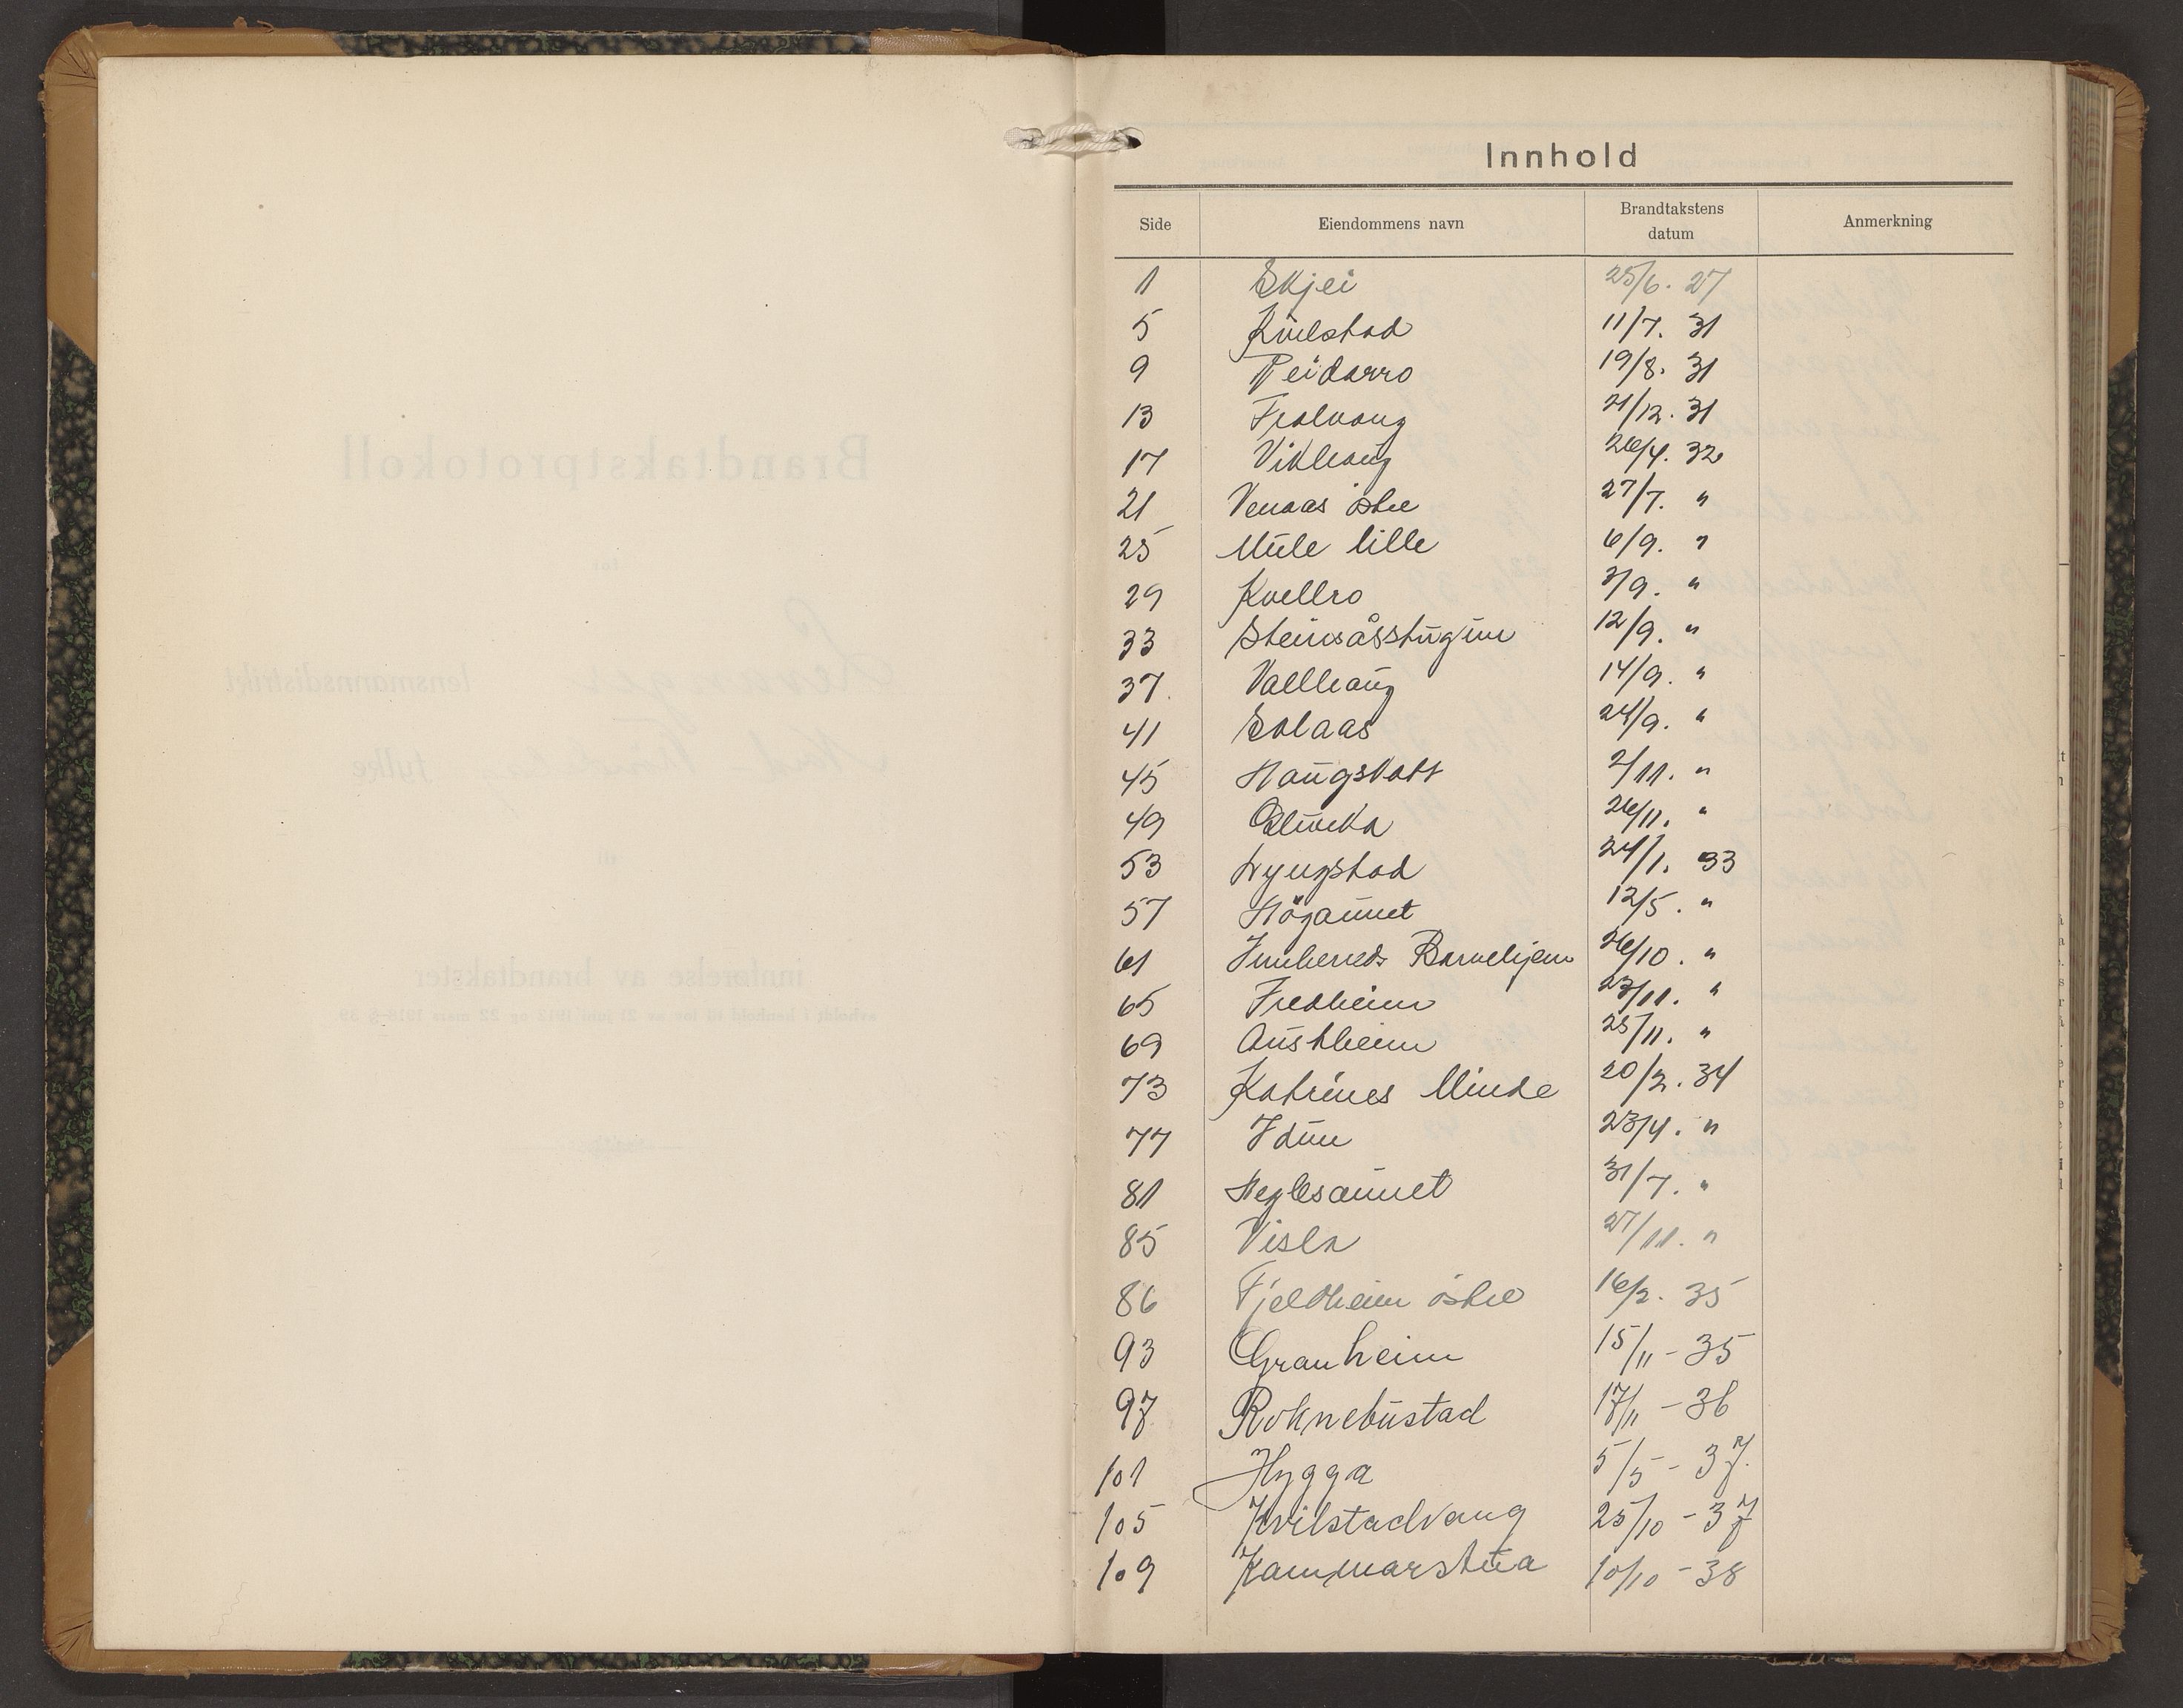 Innhold
Side Eiendommens navn Brandtakstens datum Anmerkning
1 Skjei 25/6. 27
5 Kvilstad 11/7. 31
9 Reidarro 19/8. 31
13 Fralvang 21/12. 31
17 Vikhaug 26/4. 32
21 Venaas östre 27/7. "
25 Mule lille 6/9. "
29 Kvellro 7/9. "
33 Steinsåsstugun 12/9. "
37. Vallhaug 14/9. "
41 Solaas 24/9. "
45 Haugskott 2/11. "
49 26/11. "
53 Lyngstad 24/1. 33
57 Högaunet 12/5. "
61 Innherreds Barnehjem 26/10. "
65 Fredheim 23/11. "
69 Austheim 25/11. "
73 Katrines Minde 20/2. 34
77 Idun 23/4. "
81 Heglesaunet 31/7. "
85 Visla 27/11. "
86 Fjeldheim östre 16/2. 35
93 Granheim 15/11 - 35
97 Roknebustad 17/11 - 36
101 Hygga 5/5 - 37.
105 Kvilstadvang 25/10 - 37
109 Kammarstua 10/10 - 38
Brandtakstprotokoll
for
Levanger lensmannsdistrikt
Nord Trøndelag fylke
til
innførelse av brandtakster
avholdt i henhold til lov av 21 juni 1912 og 22 mars 1918 § 39.